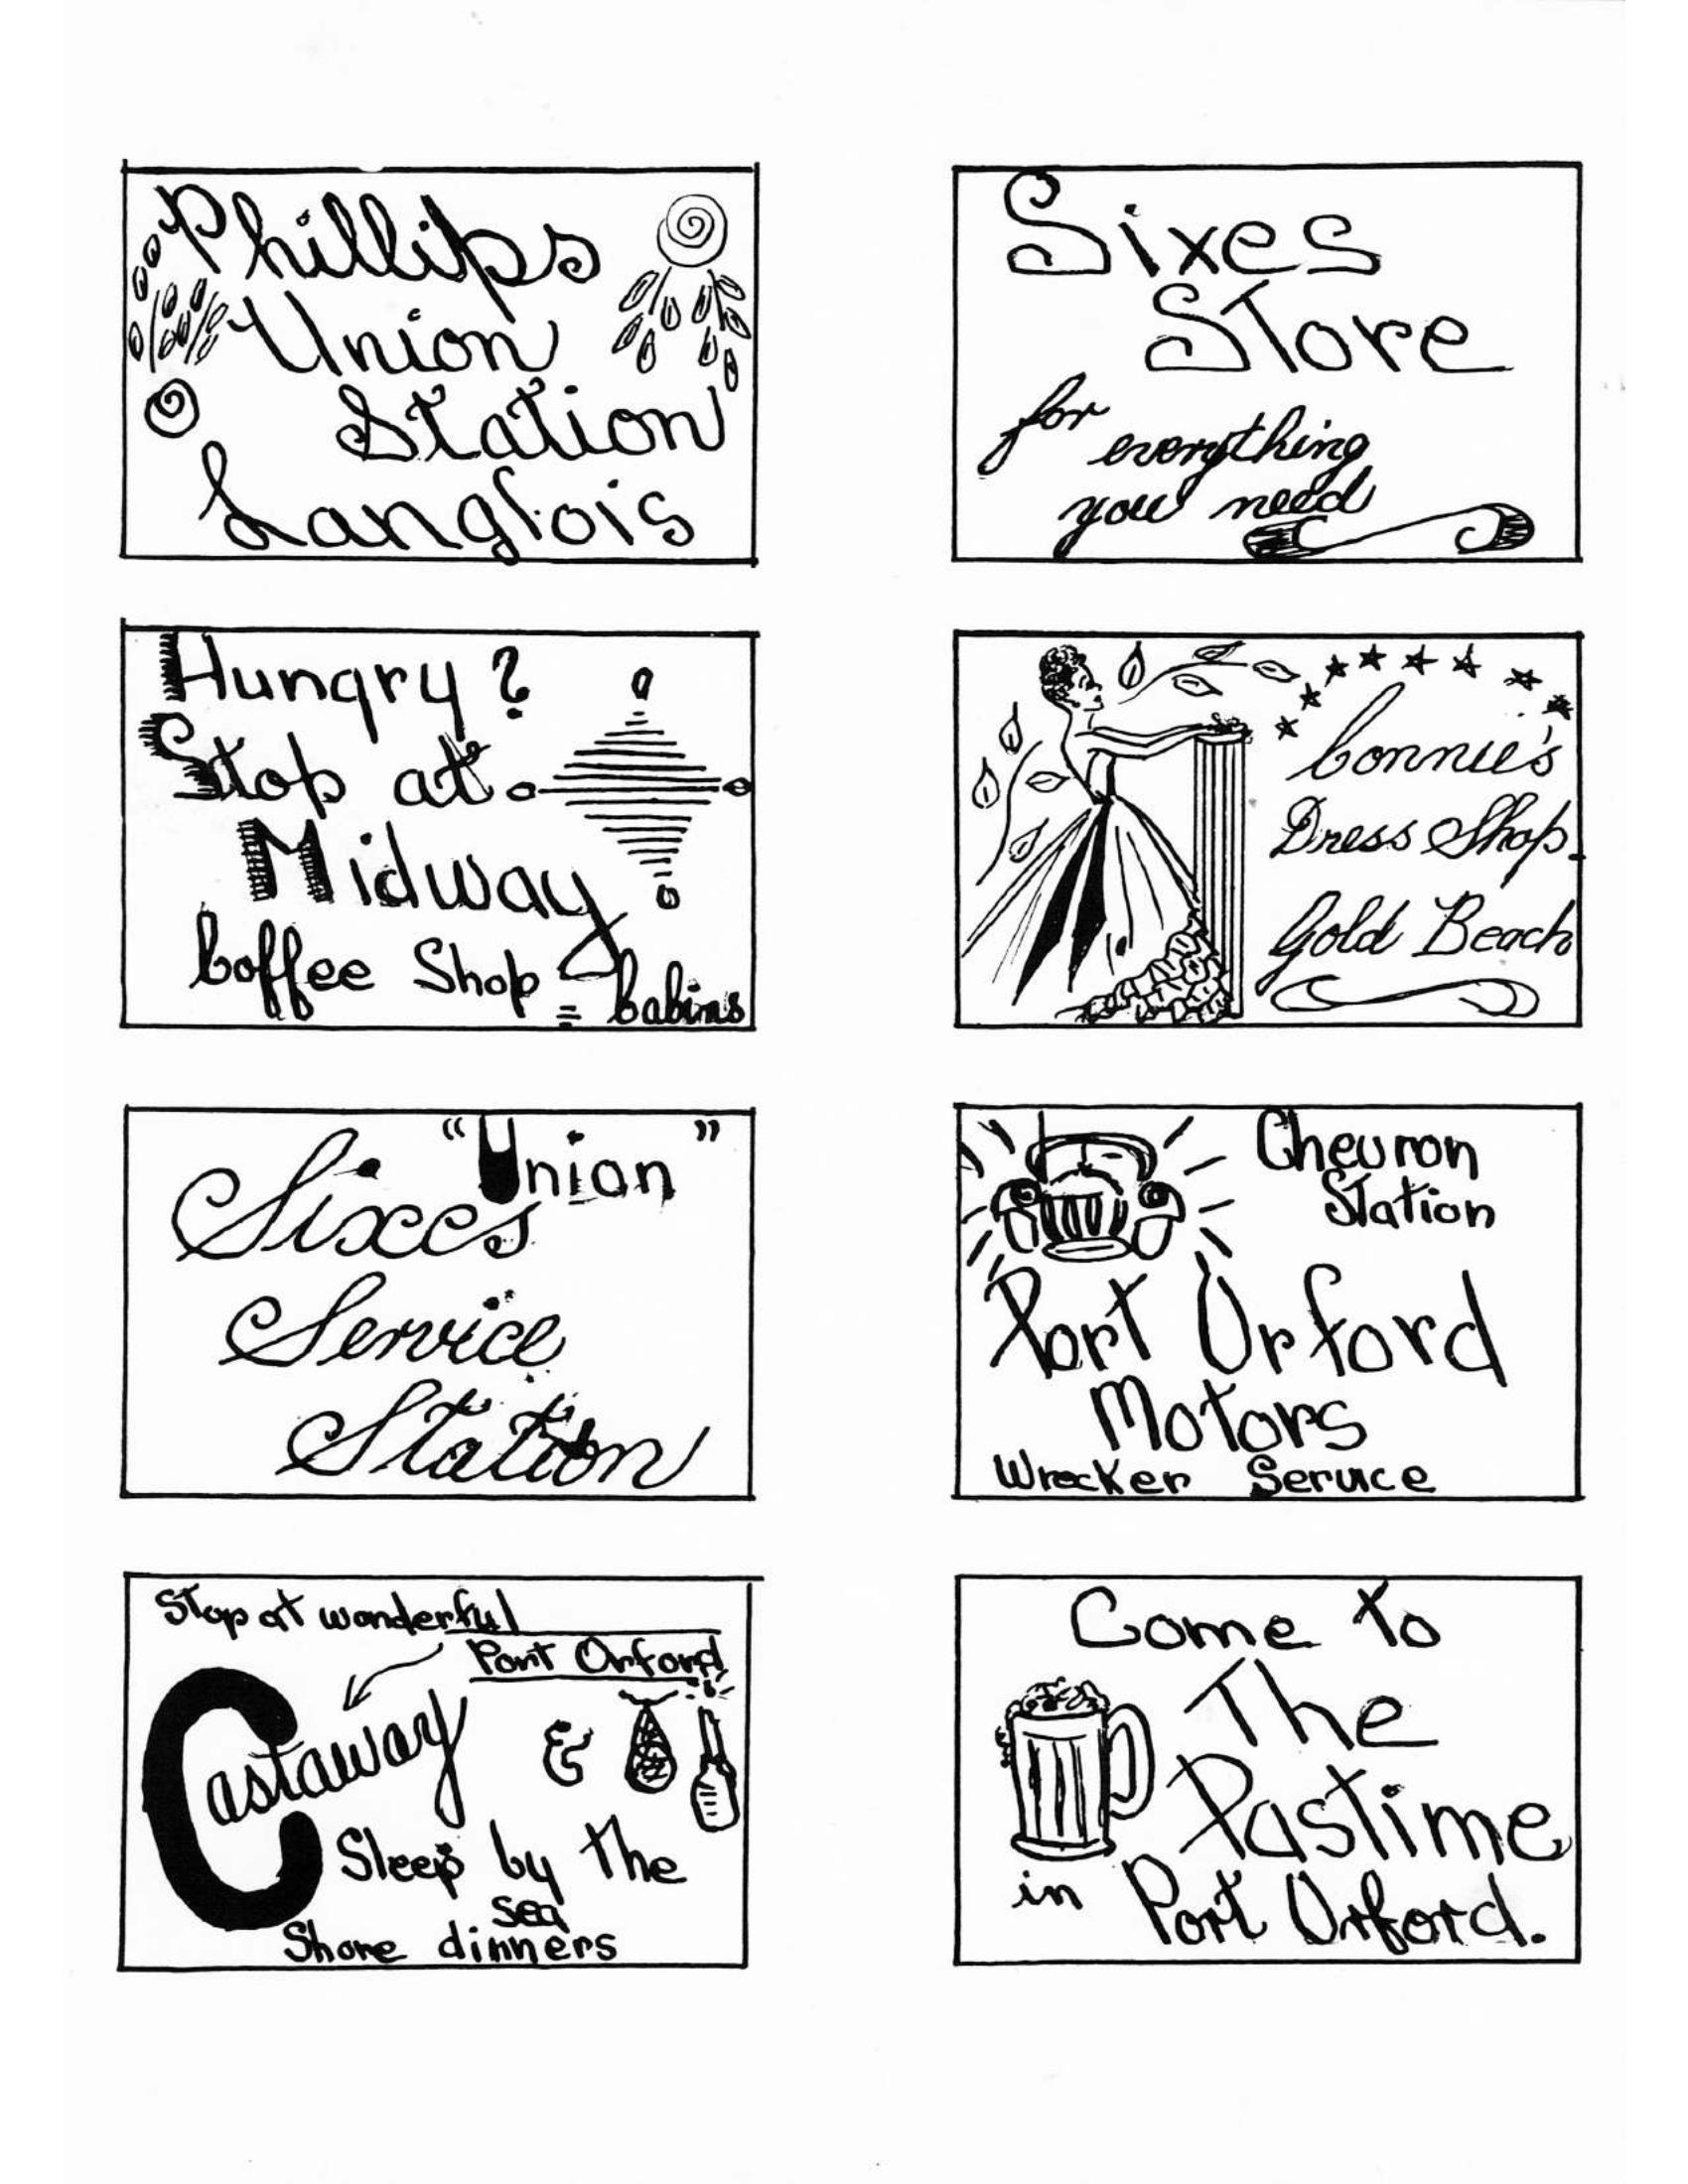 Phillips
Union
Station
Langlois
Sixes
Store
for everything
you need
Hungry?
Stop at
Midway
Coffee Shop = Cabins
Connie's
Dress Shop
Gold Beach
"Union"
Sixes
Service
Station
Chevron
Station
Port Orford
Motors
Wrecker Service
Stop at wonderful
Port Orford
Castaway &
Sleep by the
sea
Shore dinners
Come to
The
Pastime
in Port Orford.